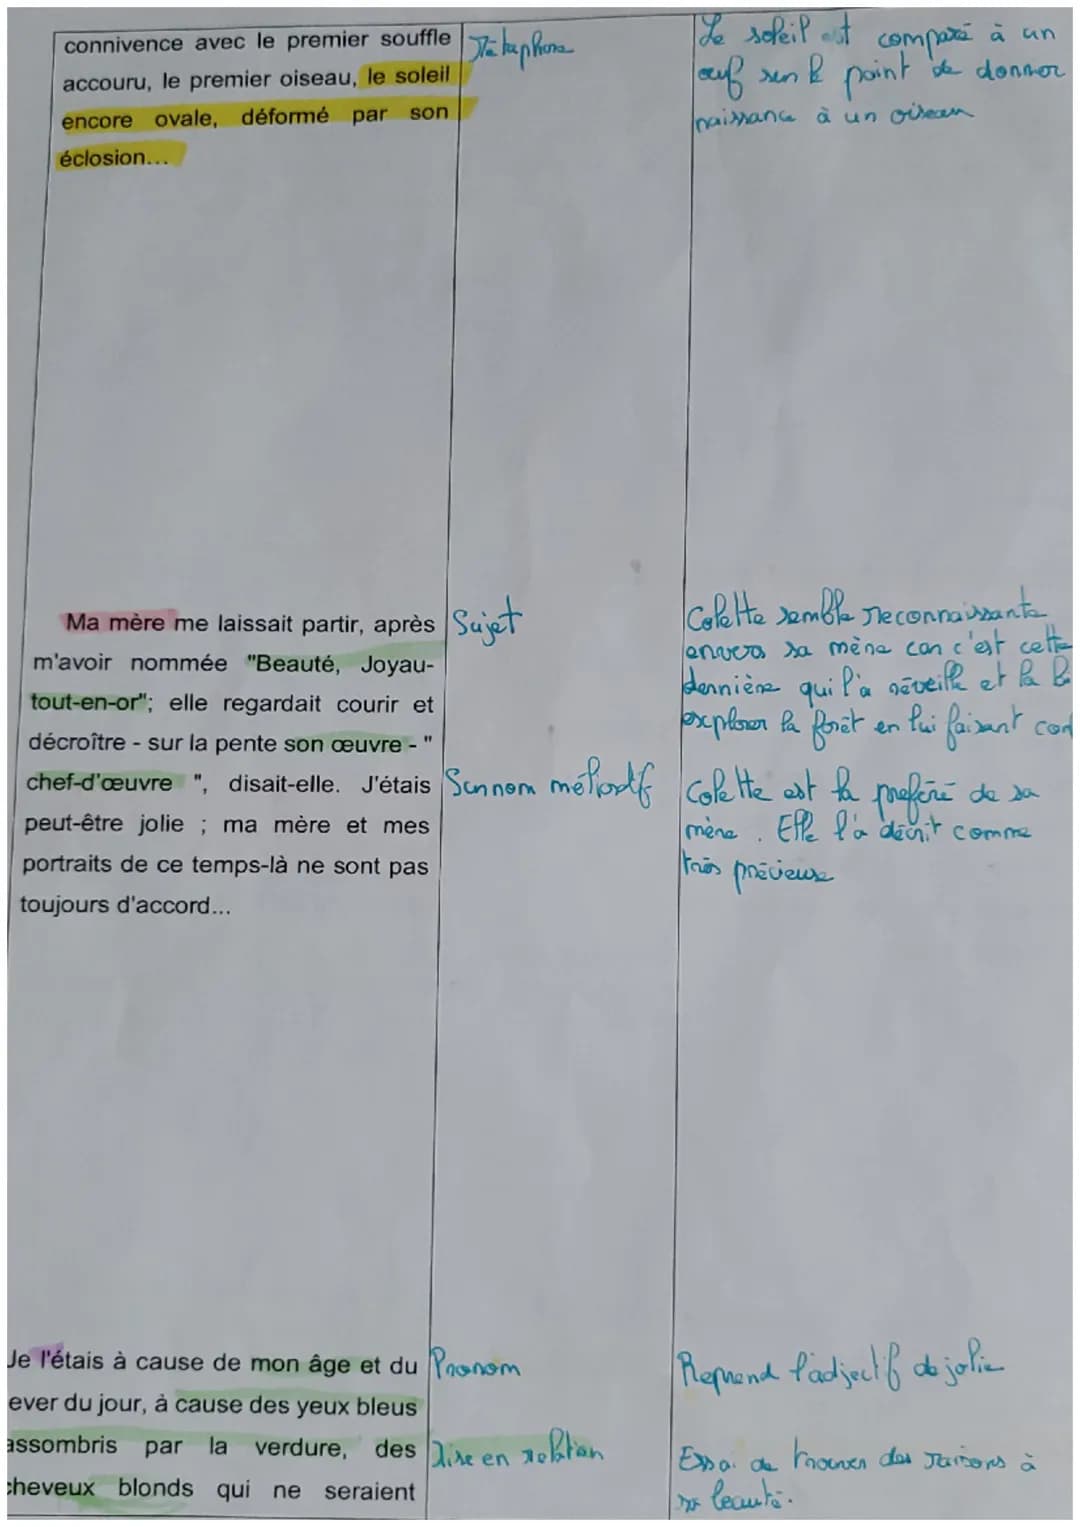 connivence avec le premier souffle
accouru, le premier oiseau, le soleil
encore ovale, déformé par son
éclosion...
Métaphore
Le soleil est comparé à un
œuf sur le point de donner
naissance à un oiseau
Ma mère me laissait partir, après
m'avoir nommée "Beauté, Joyau-
tout-en-or"; elle regardait courir et
décroître - sur la pente son œuvre - "
chef-d'œuvre ", disait-elle. J'étais
peut-être jolie ; ma mère et mes
portraits de ce temps-là ne sont pas
toujours d'accord...
Sujet
Surnom mélioratif
Colette semble reconnaissante
envers sa mère car c'est cette
dernière qui l'a réveillé et la
explorer la forêt en lui faisant
Colette est la préféré de sa
mère. Elle l'a décrit comme
très précieuse
Je l'étais à cause de mon âge et du
lever du jour, à cause des yeux bleus
assombris par la verdure, des
cheveux blonds qui ne seraient
Pronom
Mise en relation
Reprend l'adjectif de jolie
Essai de trouver des raisons à
sa beauté.